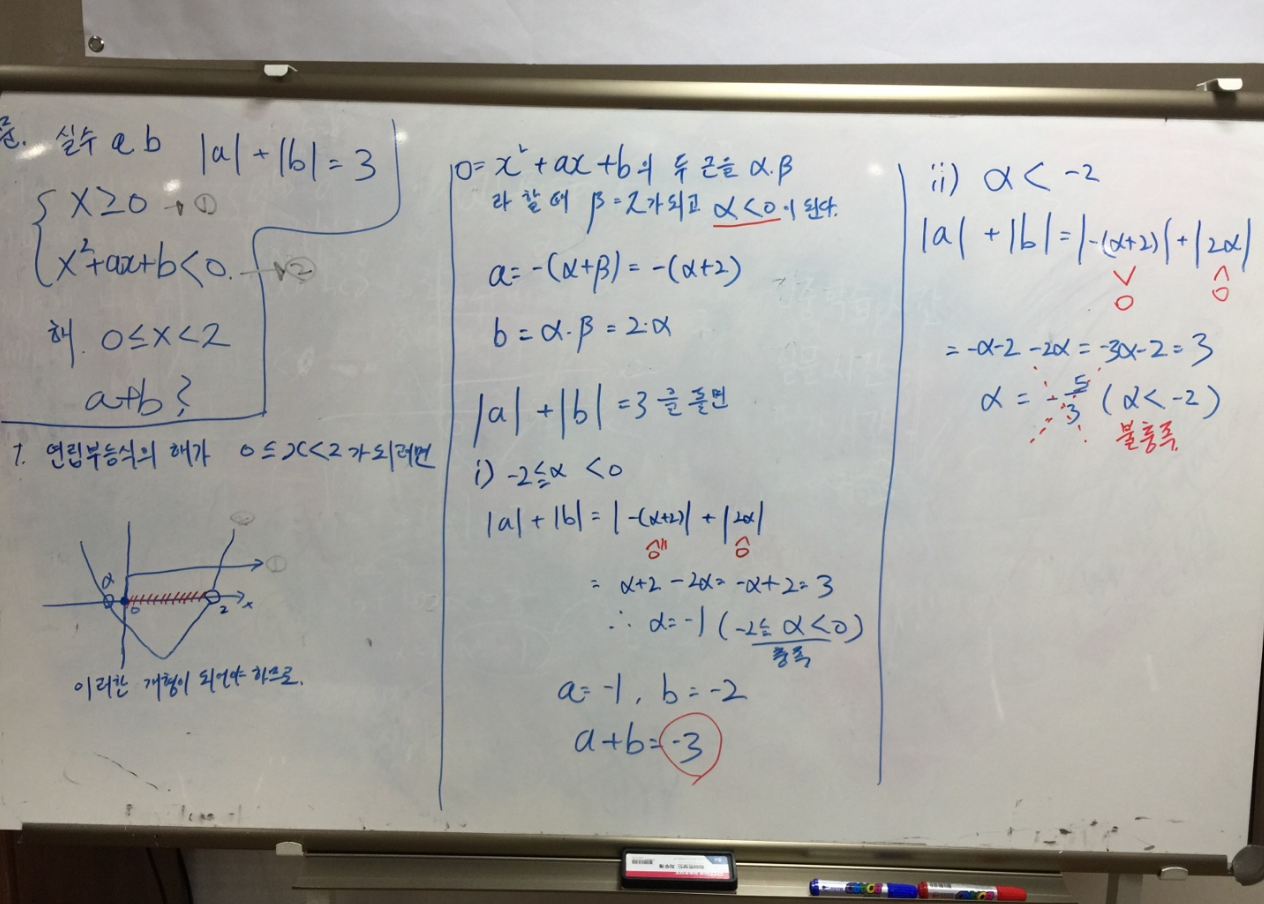 문. 실수 a b |a| + |b| = 3
x ≥ 0 → ①
x²+ax+b<0. → ②
해. 0≤x<2
a+b ?
1. 연립부등식의 해가 0≤x<2가 되려면
②
①
α
0
2
x
이러한 개형이 되어야 하므로.
0= x²+ax+b의 두 근을 α.β
라 할 때 β=2가 되고 α<0이 된다.
a= -(α+β) = -(α+2)
b = α.β = 2.α
|a| + |b| = 3 를 풀면
i) -2≤α <0
|a| + |b| = |-(α+2)| + |2α|
= α+2 -2α = -α+2 = 3
∴ α=-1 (-2≤ α<0)
충족
a=-1, b=-2
a+b=-3
ii) α< -2
|a| + |b| = |-(α+2)| + |2α|
∨ ∧
0 0
= -α-2 -2α = -3α-2 = 3
α = -5/3 (α<-2)
불충족.